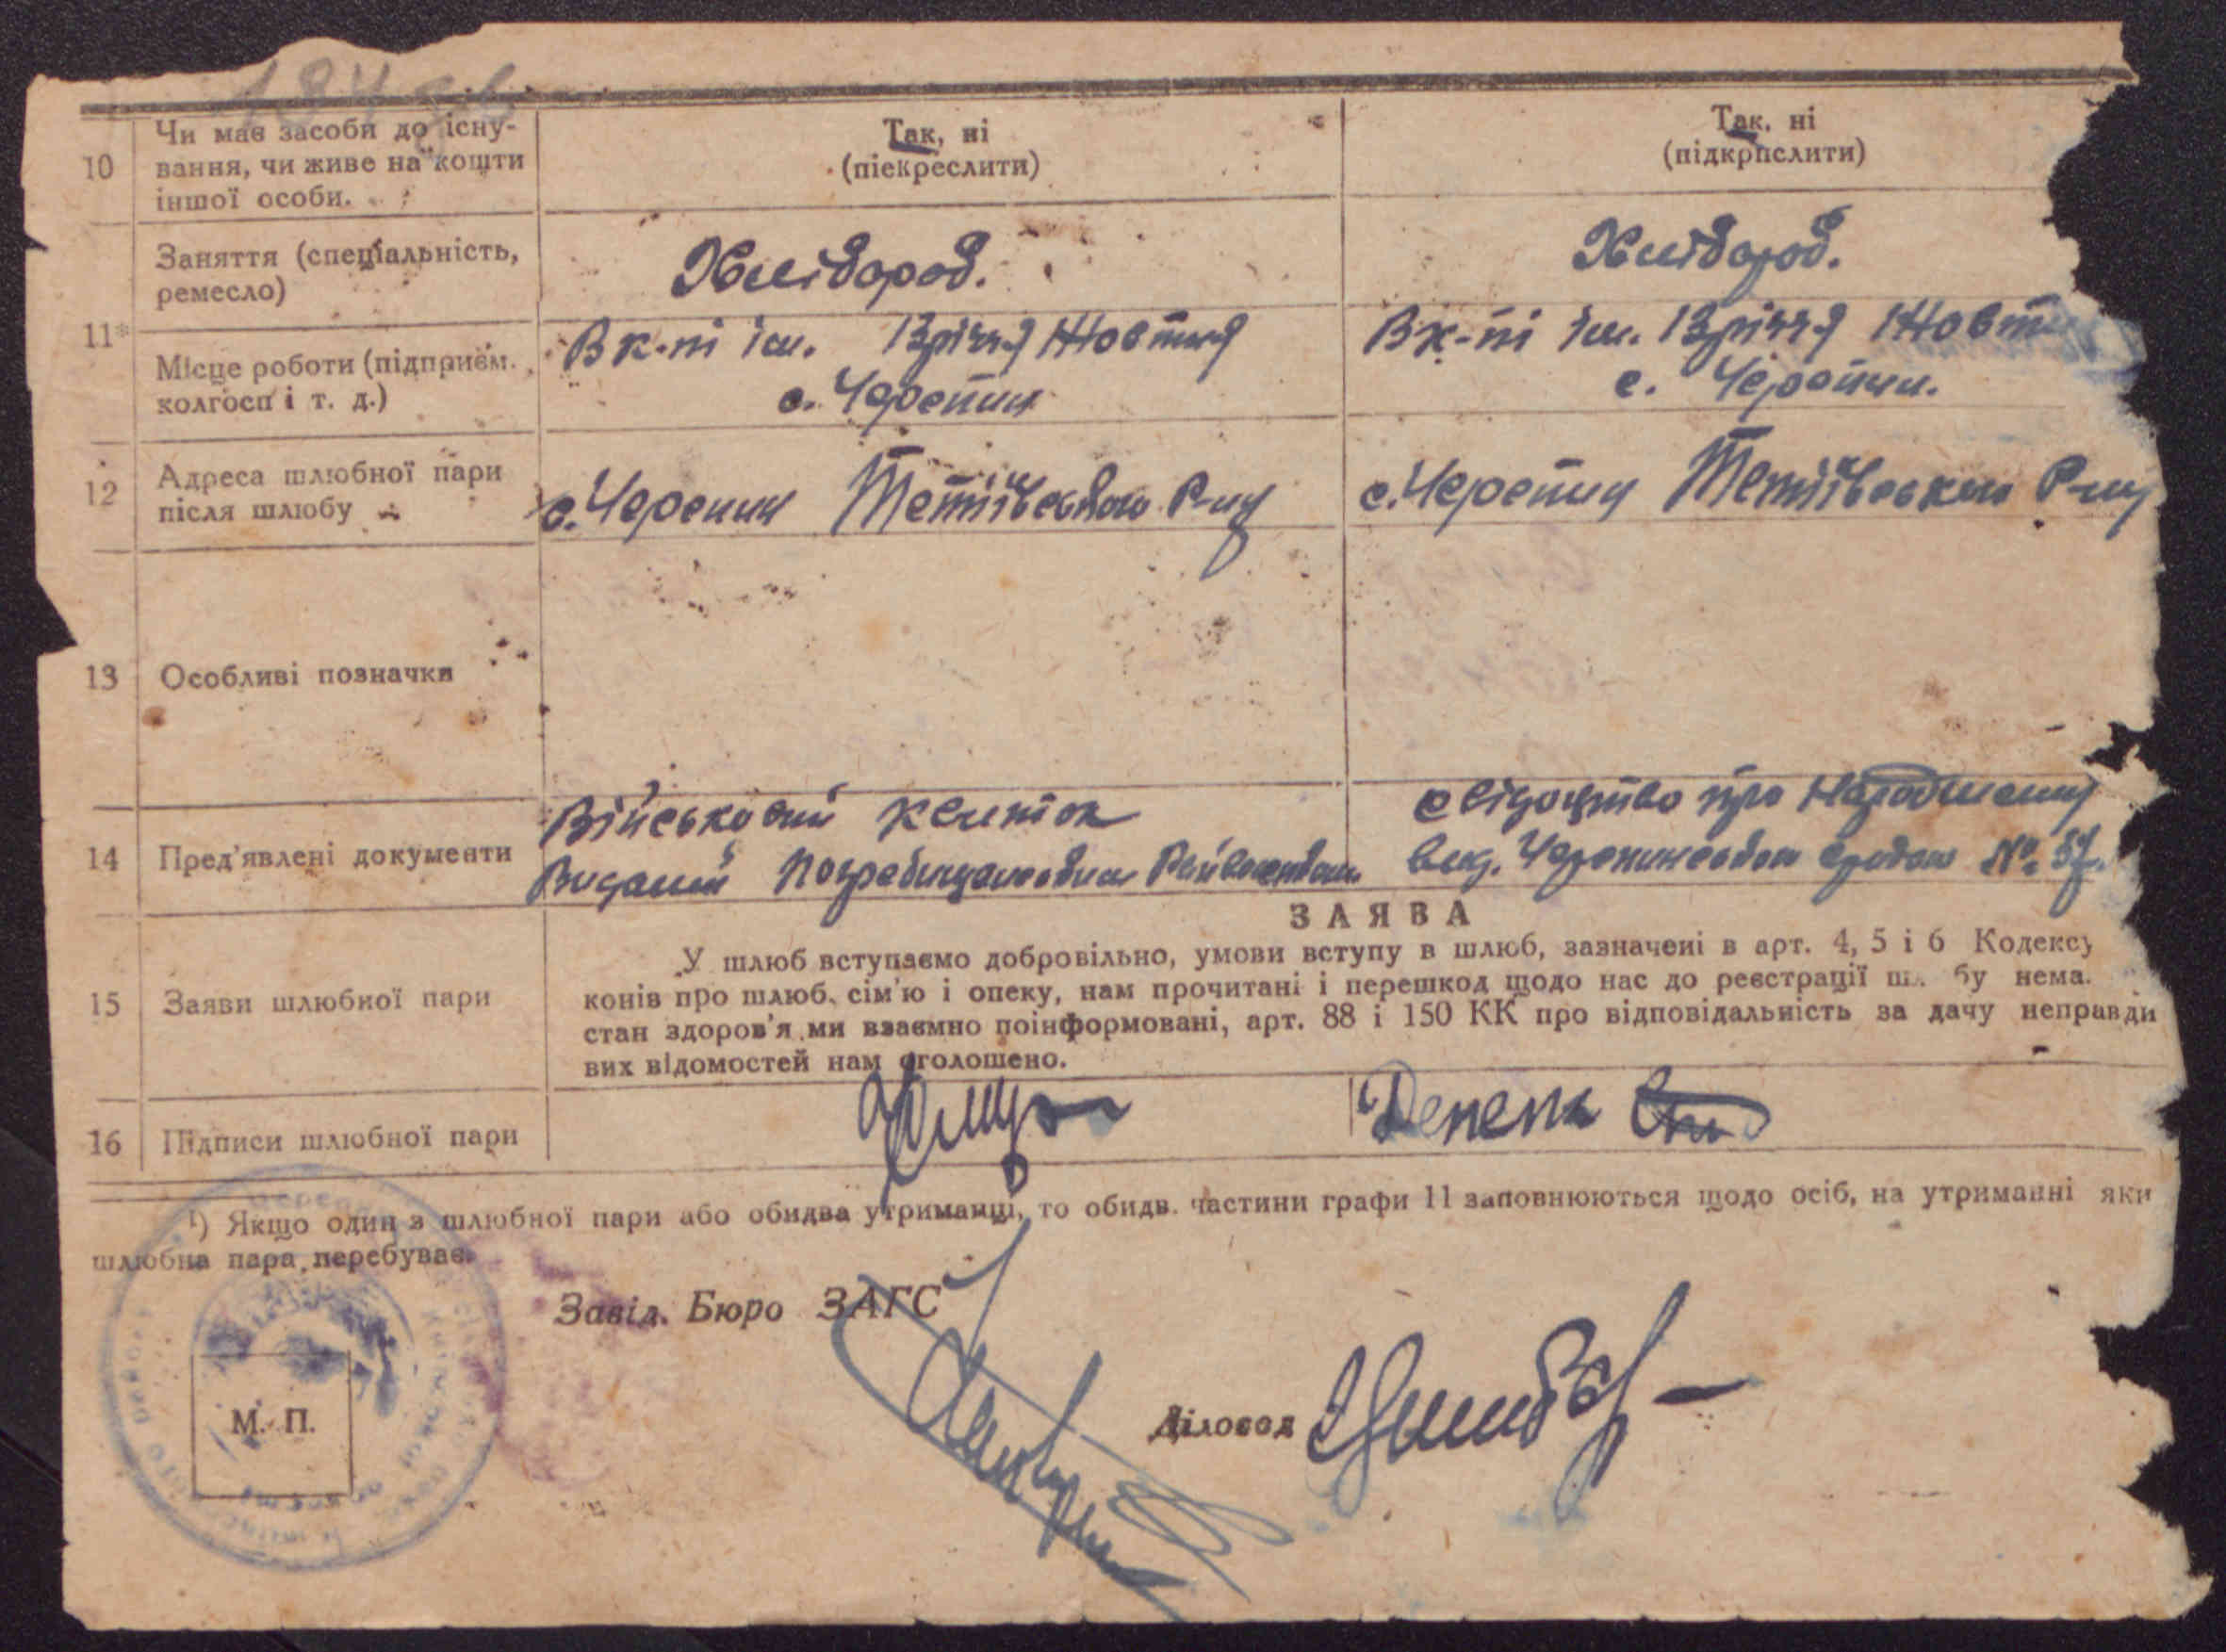 184 зв
10 Чи має засоби до існу-
вання, чи живе на кошти
іншої особи.
Так, ні
(піекреслити)
Так, ні
(підкрпслити)
11* Заняття (спеціальність,
ремесло)
Хлібороб.
Хлібороб.
Місце роботи (підприєм.
колгосп і т. д.)
В к-пі ім. 13річчя Жовтня
с. Черепин
В к-пі ім. 13річчя Жовтн
с. Черепин.
12 Адреса шлюбної пари
після шлюбу
с. Черепин Тетіївського Р-ну
с. Черепин Тетіївського Р-ну
13 Особливі позначки
14 Пред'явлені документи
Військовий квиток
Виданий Погребищанським Райвоєнкомом
свідоцтво про Народження
вид. Черепинською с/радою № 57.
ЗАЯВА
15 Заяви шлюбної пари
У шлюб вступаємо добровільно, умови вступу в шлюб, зазначені в арт. 4, 5 і 6 Кодексу
конів про шлюб, сім'ю і опеку, нам прочитані і перешкод щодо нас до реєстрації шл бу нема.
стан здоров'я ми взаємно поінформовані, арт. 88 і 150 КК про відповідальність за дачу неправди
вих відомостей нам оголошено.
16 Підписи шлюбної пари
Денека
¹) Якщо один з шлюбної пари або обидва утриманці, то обидв. частини графи 11 заповнюються щодо осіб, на утриманні яки
шлюбна пара перебуває.
Завід. Бюро ЗАГС
Діловод
М. П.